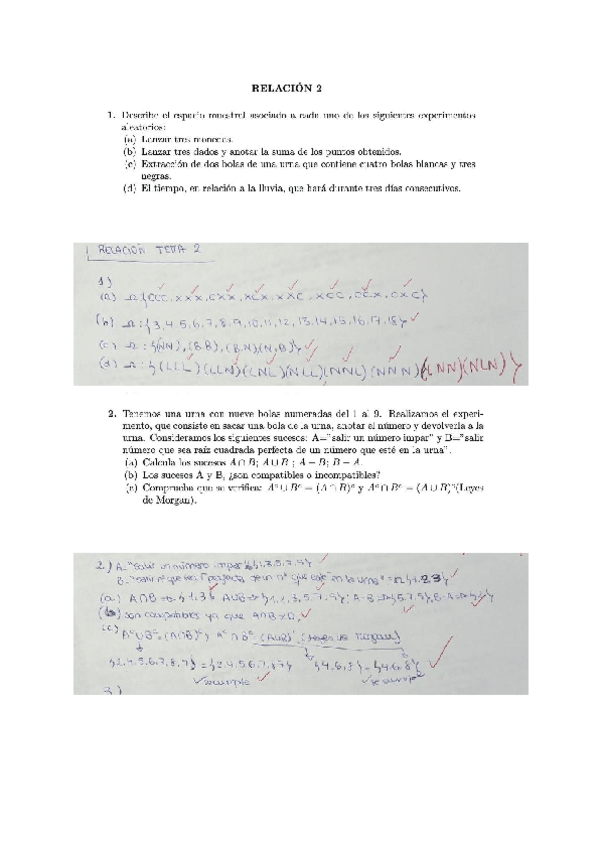 RELACIÓN 2
1. Describe el espacio muestral asociado a cada uno de los siguientes experimentos
aleatorios:
(a) Lanzar tres monedas.
(b) Lanzar tres dados y anotar la suma de los puntos obtenidos.
(c) Extracción de dos bolas de una urna que contiene cuatro bolas blancas y tres
negras.
(d) El tiempo, en relación a la lluvia, que hará durante tres días consecutivos.
RELACIÓN TEMA 2
1)
(a) Ω:{CCC, XXX, CXX, XCX, XXC, XCC, CCX, CXC}
(b) Ω:{3,4,5,6,7,8,9,10,11,12,13,14,15,16,17,18}
(c) Ω:{(N,N),(B,B),(B,N),(N,B)}
(d) Ω:{(LLL)(LLN)(LNL)(NLL)(NNL)(NNN)(LNN)(NLN)}
2. Tenemos una urna con nueve bolas numeradas del 1 al 9. Realizamos el experi-
mento, que consiste en sacar una bola de la urna, anotar el número y devolverla a la
urna. Consideramos los siguientes sucesos: A="salir un número impar" y B="salir
número que sea raíz cuadrada perfecta de un número que esté en la urna".
(a) Calcula los sucesos A ∩ B; A ∪ B ; A − B; B − A.
(b) Los sucesos A y B, ¿son compatibles o incompatibles?
(c) Comprueba que se verifica: Aᶜ ∪ Bᶜ = (A ∩ B)ᶜ y Aᶜ ∩ Bᶜ = (A ∪ B)ᶜ(Leyes
de Morgan).
2) A="salir un número impar"{1,3,5,7,9}
B="salir nº que sea perfecta de un nº que esté en la urna"
(a) A∩B= {1,3} A∪B={1,2,3,5,7,9}; A-B={5,7,9}, B-A={2}
(b) son compatibles ya que A∩B≠∅
(c) Aᶜ∪Bᶜ=(A∩B)ᶜ y Aᶜ∩Bᶜ=(A∪B)ᶜ
{2,4,5,6,7,8,9}={2,4,5,6,7,8,9} {4,6,8}={4,6,8}
se cumple se cumple
3)